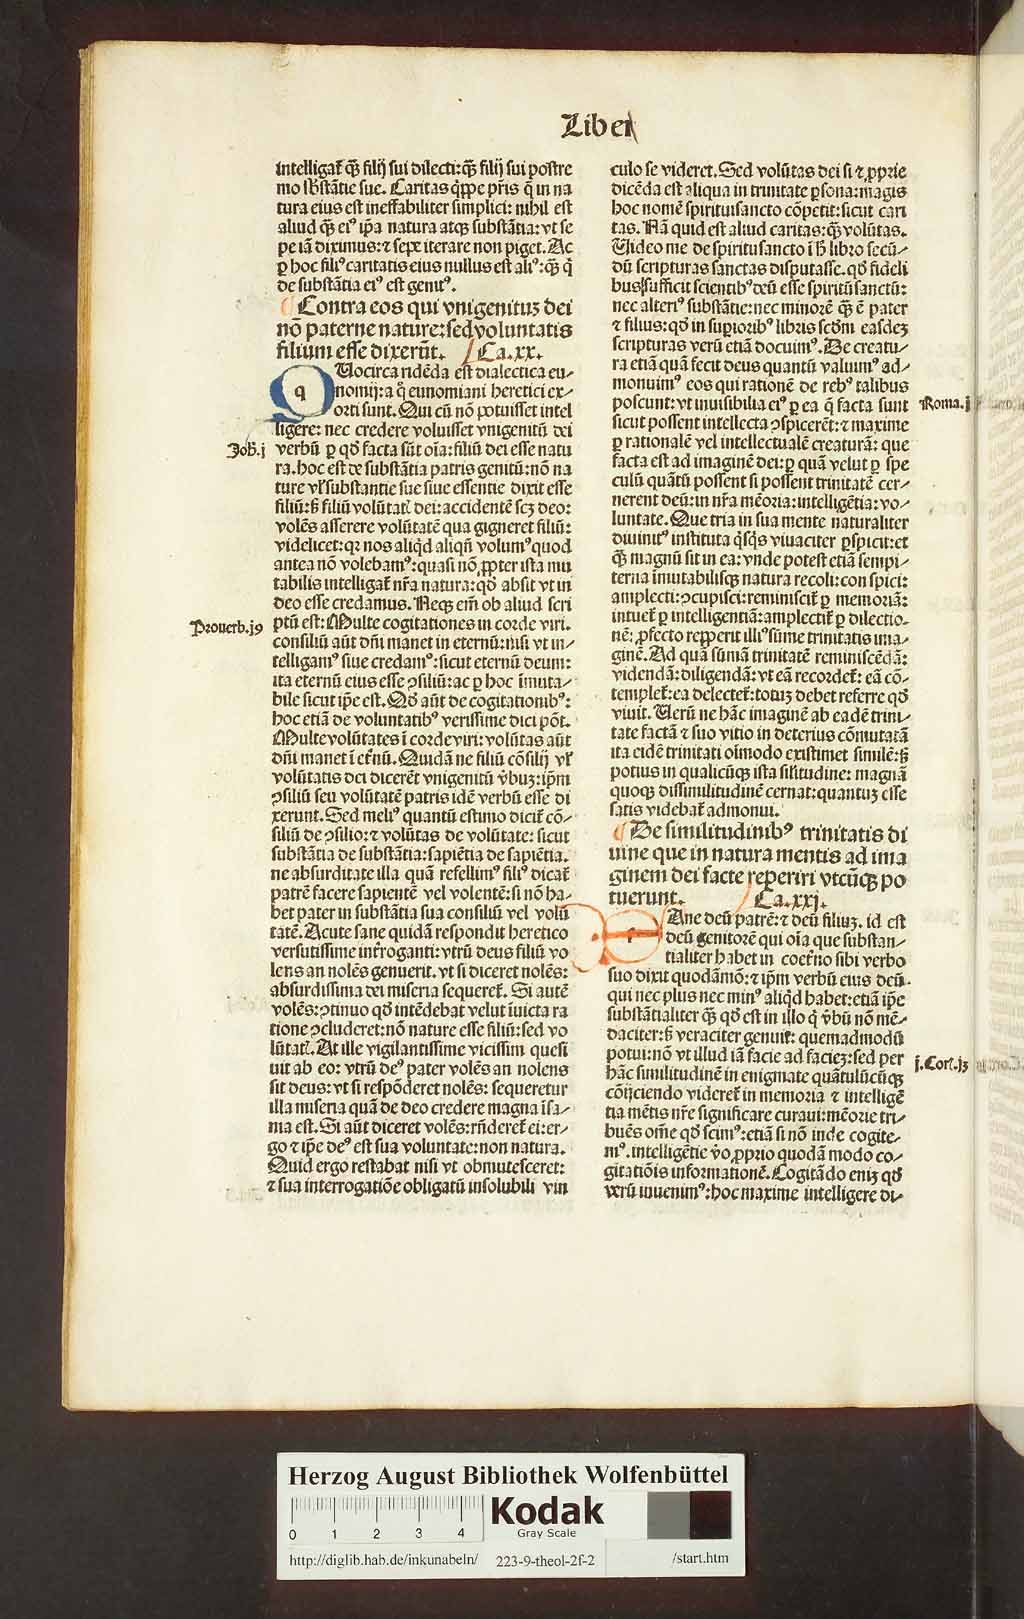 Liber
intelligat̃ q̄ꝫ filij sui dilecti: q̄ꝫ filij sui postre
mo sb̄stātie sue. Caritas q̇ppe pr̄is q̄ in na
tura eius est ineffabiliter simplici: nihil est
aliud q̄ꝫ eiꝰ ip̄a natura atqꝫ substātia: vt se
pe iā diximus: ⁊ sepe iterare non piget. Ac
ꝑ hoc filiꝰ caritatis eius nullus est aliꝰ: q̄ꝫ q̇
de substātia eiꝰ est genitꝰ.
¶ Contra eos qui vnigenituꝫ dei
nō paterne nature: sed voluntatis
filium esse dixerūt. Ca. xx.
QUocirca ridēda est dialectica eu-
nomij: a q̊ eunomiani heretici ex-
orti sunt. Qui cū nō potuisset intel
ligere: nec credere voluisset vnigenitū dei
Joh̄. j
verbū ꝑ qd̄ facta sūt oīa: filiū dei esse natu
ra. hoc est de substātia patris genitū: nō na
ture vl̓ substantie sue siue essentie dixit esse
filiū: sꝫ filiū volūtatꝭ dei: accidentē scꝫ deo:
volēs asserere volūtatē qua gigneret filiū:
videlicet: qꝛ nos aliq̇d aliqn̄ volumꝰ quod
antea nō volebamꝰ: quasi nō ꝓpter ista mu
tabilis intelligat̃ nr̄a natura: qd̄ absit vt in
deo esse credamus. Neqꝫ em̄ ob aliud scri
Prouerb. j9
ptū est: Multe cogitationes in corde viri.
consiliū aūt dn̄i manet in eternū: nisi vt in-
telligamꝰ siue credamꝰ: sicut eternū deum:
ita eternū eius esse ꝯsiliū: ac ꝑ hoc īmuta-
bile sicut ip̄e est. Qd̄ aūt de cogitationibꝰ:
hoc etiā de voluntatibꝰ verissime dici pōt.
Multe volūtates ī corde viri: volūtas aūt
dn̄i manet ī et̓nū. Quidā ne filiū cōsilij vl̓
volūtatis dei dicerēt vnigenitū v̓buꝫ: ip̄m
ꝯsiliū seu volūtatē patris idē verbū esse di
xerunt. Sed meliꝰ quantū estimo dicit̃ cō-
siliū de ꝯsilio: ⁊ volūtas de volūtate: sicut
substātia de substātia: sapiētia de sapiētia.
ne absurditate illa quā refellimꝰ filiꝰ dicat̃
patrē facere sapientē vel volentē: si nō ha-
bet pater in substātia sua consiliū vel volū
tatē. Acute sane quidā respondit heretico
versutissime int̓roganti: vtrū deus filiū vo
lens an nolēs genuerit. vt si diceret nolēs:
absurdissima dei miseria sequeret̃. Si autē
volēs: ꝯtinuo qd̄ intēdebat velut īuicta ra
tione ꝯcluderet: nō nature esse filiū: sed vo
lūtatꝭ. At ille vigilantissime vicissim quesi
uit ab eo: vtrū deꝰ pater volēs an nolens
sit deus: vt si respōderet nolēs: sequeretur
illa miseria quā de deo credere magna īsa-
nia est. Si aūt diceret volēs: rn̄deret̃ ei: er-
go ⁊ ip̄e deꝰ est sua voluntate: non natura.
Quid ergo restabat nisi vt obmutesceret:
⁊ sua interrogatiōe obligatū insolubili vin
culo se videret. Sed volūtas dei si ⁊ ꝓprie
dicēda est aliqua in trinitate ꝑsona: magis
hoc nomē spirituisancto cōpetit: sicut cari
tas. Nā quid est aliud caritas: q̄ꝫ volūtas.
Uideo me de spiritusancto ī h̄ libro secū-
dū scripturas sanctas disputasse. qd̄ fideli
bus sufficit scientibꝰ deū esse spiritū sanctū:
nec alteriꝰ substātie: nec minorē q̄ꝫ ē pater
⁊ filius: qd̄ in suꝑioribꝰ libris scd̄m easdeꝫ
scripturas verū etiā docuimꝰ. De creatu-
ra etiā quā fecit deus quantū valuimꝰ ad-
monuimꝰ eos qui rationē de rebꝰ talibus
Roma. j
poscunt: vt inuisibilia eiꝰ ꝑ ea q̄ facta sunt
sicut possent intellecta ꝯspicerēt: ⁊ maxime
ꝑ rationalē vel intellectualē creaturā: que
facta est ad imaginē dei: ꝑ quā velut ꝑ spe
culū quātū possent si possent trinitatē cer-
nerent deū: in nr̄a mēoria: intelligētia: vo-
luntate. Que tria in sua mente naturaliter
diuinitꝰ instituta q̇sq̇s viuaciter ꝑspicit: et
q̄ꝫ magnū sit in ea: vnde potest etiā sempi-
terna īmutabilisqꝫ natura recoli: conspici:
amplecti: ꝯcupisci: reminiscit̃ ꝑ memoriā:
intuet̃ ꝑ intelligentiā: amplectit̃ ꝑ dilectio-
nē: ꝓfecto reꝑperit illiꝰ sūme trinitatis ima-
ginē. Ad quā sūmā trinitatē reminiscēdā:
videndā: diligendā: vt eā recordet̃: eā cō-
templet̃: ea delectet̃: totuꝫ debet referre qd̄
viuit. Uerū ne hāc imaginē ab eadē trini-
tate factā ⁊ suo vitio in deterius cōmutatā
ita eidē trinitati oīmodo existimet similē: sꝫ
potius in qualicūqꝫ ista sil̓itudine: magnā
quoqꝫ dissimilitudinē cernat: quantuꝫ esse
satis videbat̃ admonui.
¶ De similitudinibꝰ trinitatis di
uine que in natura mentis ad ima
ginem dei facte reperiri vtcūqꝫ po
tuerunt. Ca. xxj.
SAne deū patrē: ⁊ deū filiuꝫ. id est
deū genitorē qui oīa que substan-
tialiter habet in coet̓no sibi verbo
suo dixit quodāmō: ⁊ ip̄m verbū eius deū.
qui nec plus nec minꝰ aliq̇d habet: etiā ip̄e
substātialiter q̄ꝫ qd̄ est in illo q̇ v̓bū nō mē-
daciter: sꝫ veraciter genuit: quemadmodū
j. Cor. j3
potui: nō vt illud iā facie ad facieꝫ: sed per
hāc similitudinē in enigmate quātulūcūqꝫ
cōijciendo videret̃ in memoria ⁊ intelligē
tia mētis nr̄e significare curaui: mēorie tri-
buēs om̄e qd̄ scimꝰ: etiā si nō inde cogite-
mꝰ. intelligētie v̓o ꝓprio quodā modo co-
gitatiōis informationē. Cogitādo eniꝫ qd̄
verū inuenimꝰ: hoc maxime intelligere di-
Herzog August Bibliothek Wolfenbüttel
0 1 2 3 4
Kodak
Gray Scale
http://diglib.hab.de/inkunabeln/ 223-9-theol-2f-2 /start.htm